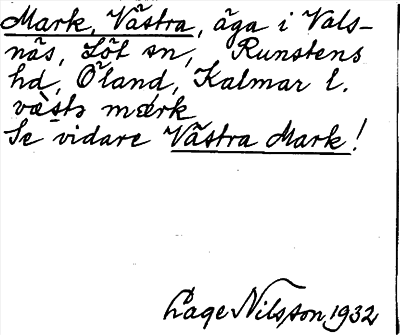 Mark, Västra, äga i Vals-
näs, Löt sn, Runstens
hd, Öland, Kalmar l.
væ̀stə mærk
Se vidare Västra Mark!
Åage Nilsson 1932